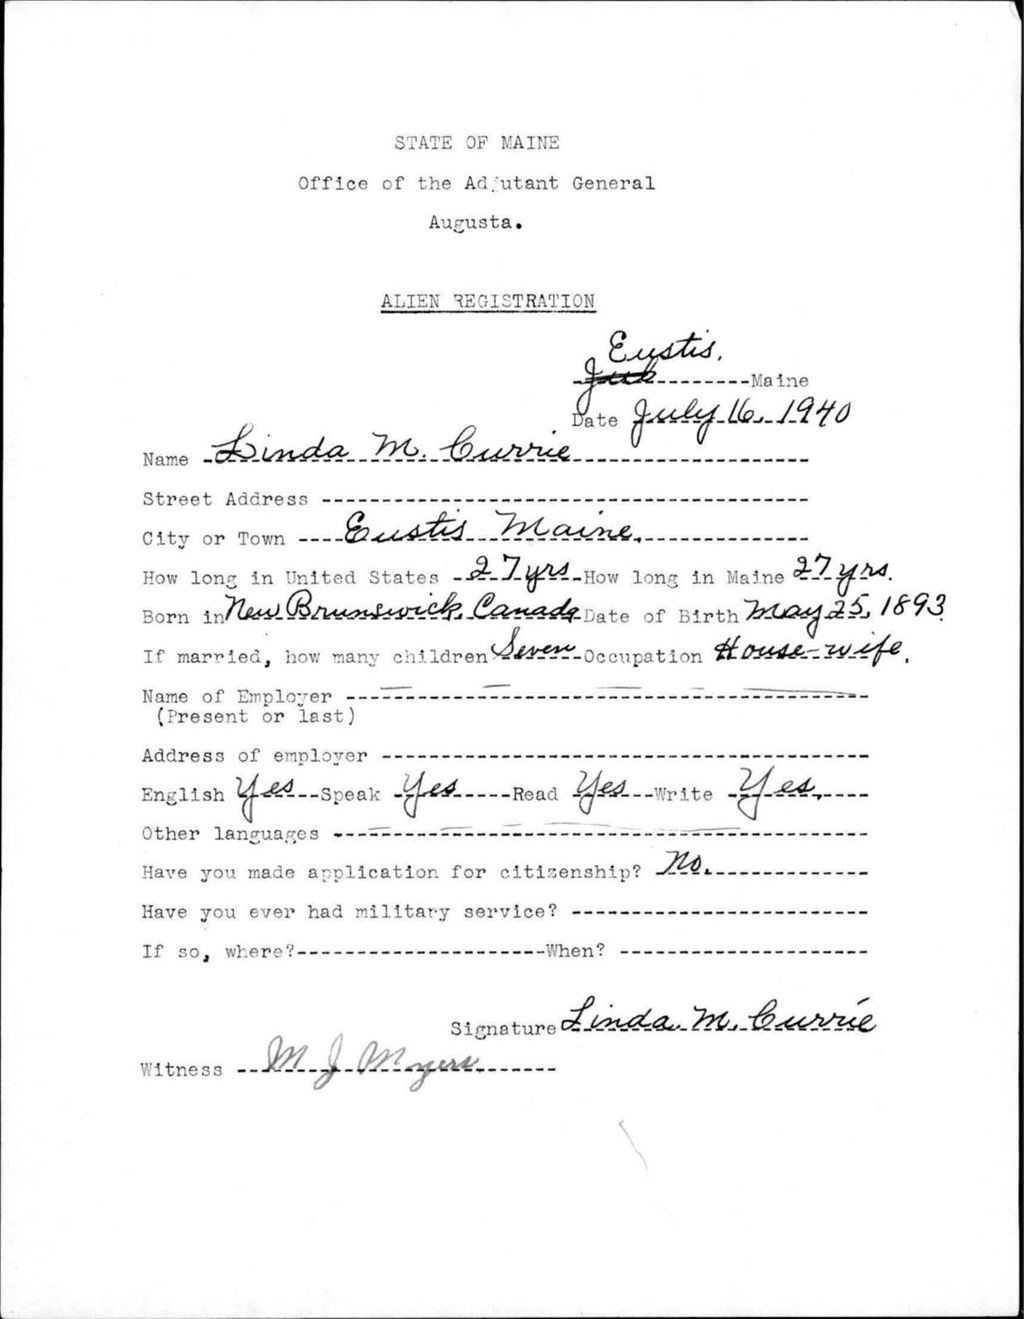 STATE OF MAINE
Office of the Adjutant General
Augusta.
ALIEN REGISTRATION
Eustis,
---------Maine
Date July 16, 1940
Name Linda M. Currie
Street Address
City or Town Eustis Maine.
How long in United States 27 yrs How long in Maine 27 yrs.
Born in New Brunswick, Canada Date of Birth May 25, 1893
If married, how many children Seven Occupation House-wife.
Name of Employer
(Present or last)
Address of employer
English Yes Speak Yes Read Yes Write Yes.
Other languages
Have you made application for citizenship? No.
Have you ever had military service?
If so, where? When?
Signature Linda M. Currie
Witness M J Myers